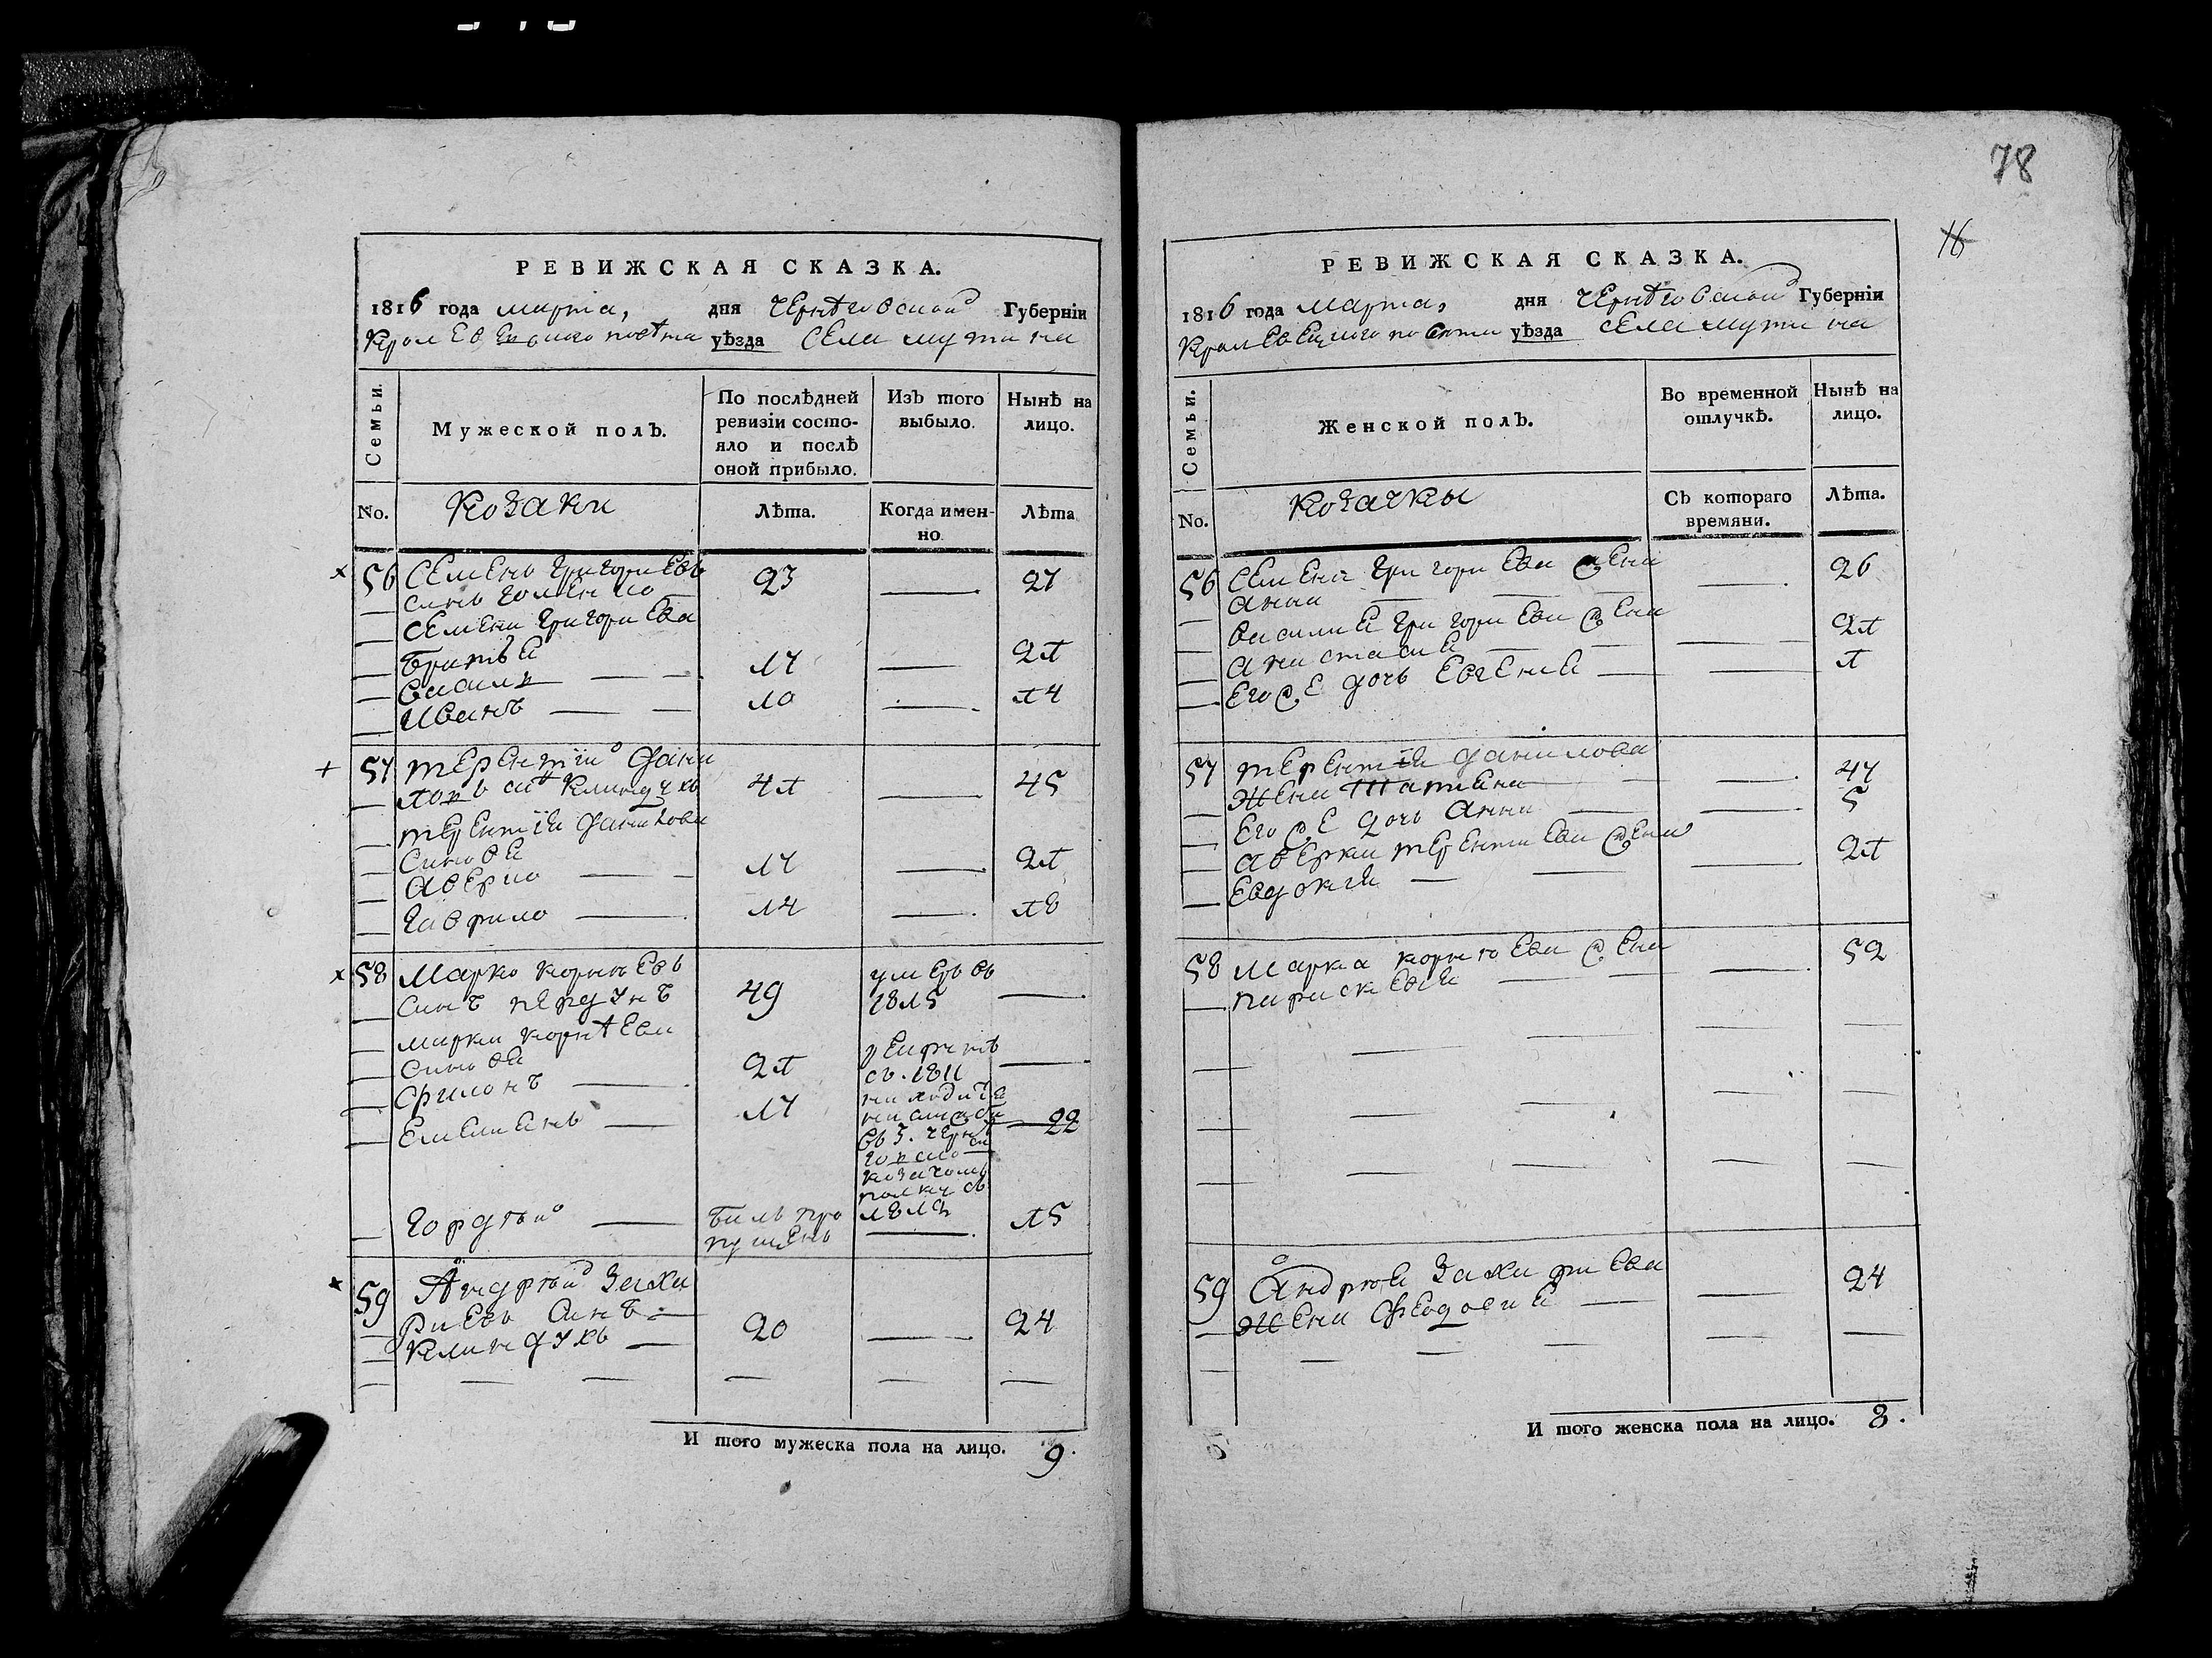 78
16
РЕВИЖСКАЯ СКАЗКА.
1816 года марта, дня Чернѣговской Губерніи
Кролевецкого повѣта уѣзда села мутина
Семьи.
Мужеской полъ.
По послѣдней ревизіи состо-
яло и послѣ
оной прибыло.
Изъ того
выбыло.
Нынѣ на
лицо.
No.
Козаки
Лѣта.
Когда имен-
но
Лѣта
56 Семенъ григориевъ
синъ 23 — 27
Семена григориева
братья
василь — 17 — 21
иванъ — 10 — 14
57 терентій дани
ловъ синъ клиндухъ 41 — 45
терентія данилова
синовя
аверко — 17 — 21
гаврило — 14 — 18
58 Марко корнѣевъ
синъ пердунъ 49 умеръ въ
1815 —
марка корнѣева
синовя
филонъ — 21
въ. 1811 —
Емелианъ — 17 22
козачомъ
полку съ
1812
гордѣй — билъ про
пущенъ — 15
59 Андрѣй Заха
риевъ синъ —
клиндухъ — 20 — 24
И того мужеска пола на лицо. 9.
РЕВИЖСКАЯ СКАЗКА.
1816 года марта, дня чернѣговской Губерніи
Кролевецкого повѣта уѣзда села мутина
Семьи.
Женской полъ.
Во временной
отлучкѣ.
Нынѣ на
лицо.
No.
Козачки
Съ котораго
времяни.
Лѣта.
56 Семена григориева жена
анна — 26
василия григориева жена
анастасия — 21
его же дочь Евгения — 1
57 терентія данилова
жена татяна — 47
его же дочь анна — 5
аверка терентиева жена
Евдокия — 21
58 марка корнѣева жена
параскевия — 52
59 андрѣя захариева
жена феодосия — 24
И того женска пола на лицо. 8.